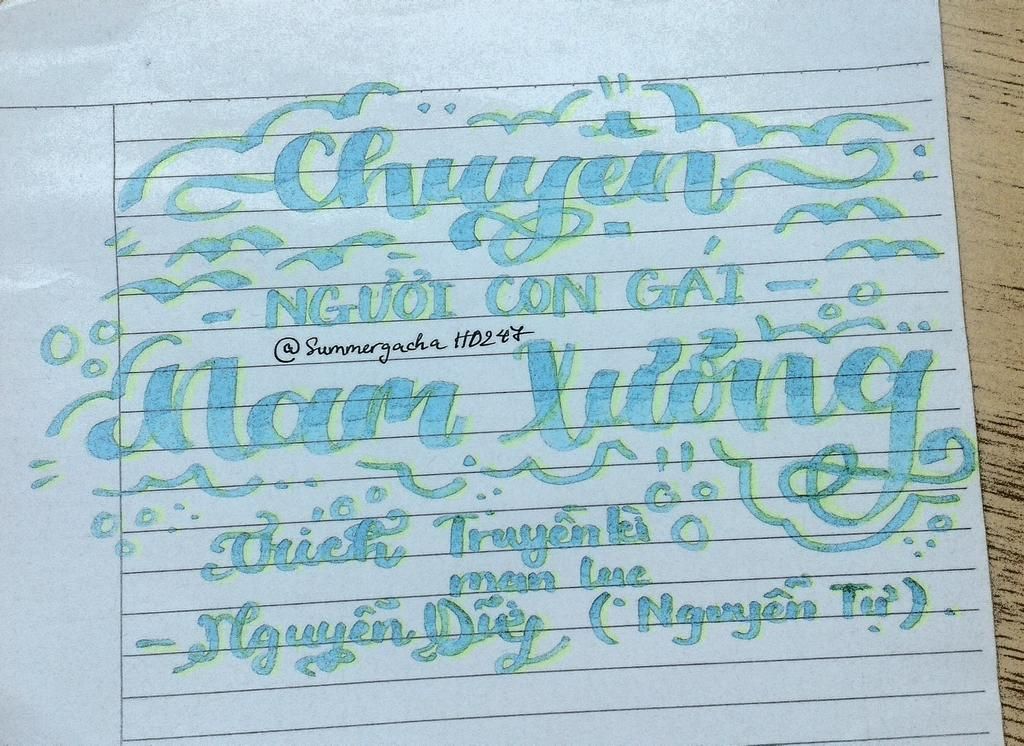 Chuyện
- NGƯỜI CON GÁI -
@Summergacha HD247
Nam Xương
Trích Truyền kì
mạn lục
- Nguyễn Dữ ( Nguyễn Tự ).